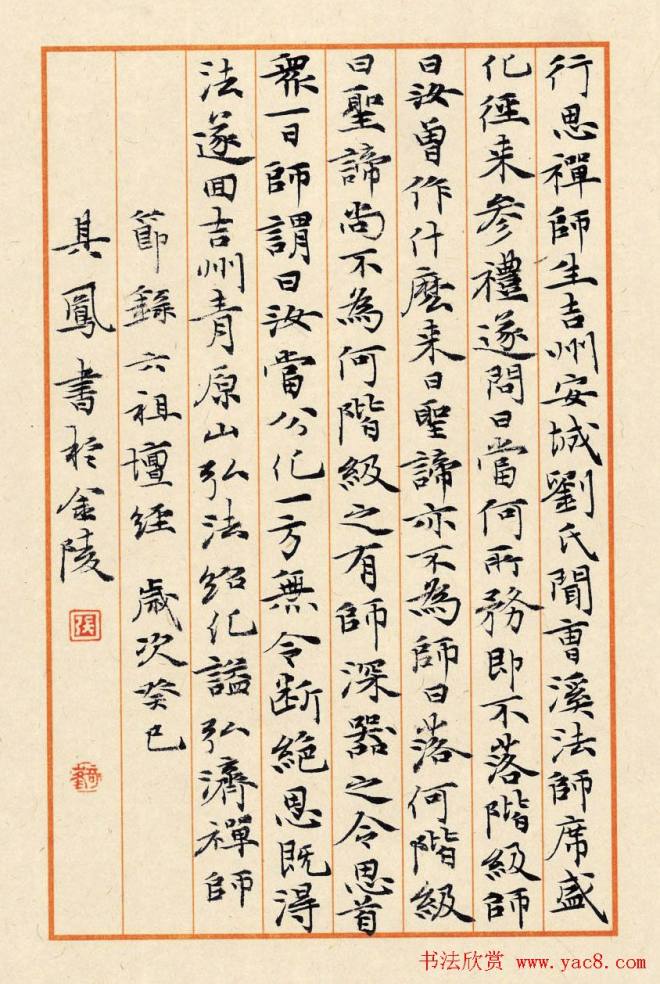 行思禪師生吉州安城劉氏聞曹溪法師席盛
化徑来参禮遂問曰當何所務即不落階級師
曰汝曾作什麽来曰聖諦亦不為師曰落何階級
曰聖諦尚不為何階級之有師深器之令思首
衆一日師謂曰汝當分化一方無令断絶思既得
法遂回吉州青原山弘法紹化謚弘濟禪師
節錄六祖壇經 歲次癸巳
其鳳書於金陵
張
书法欣赏 www.yac8.com